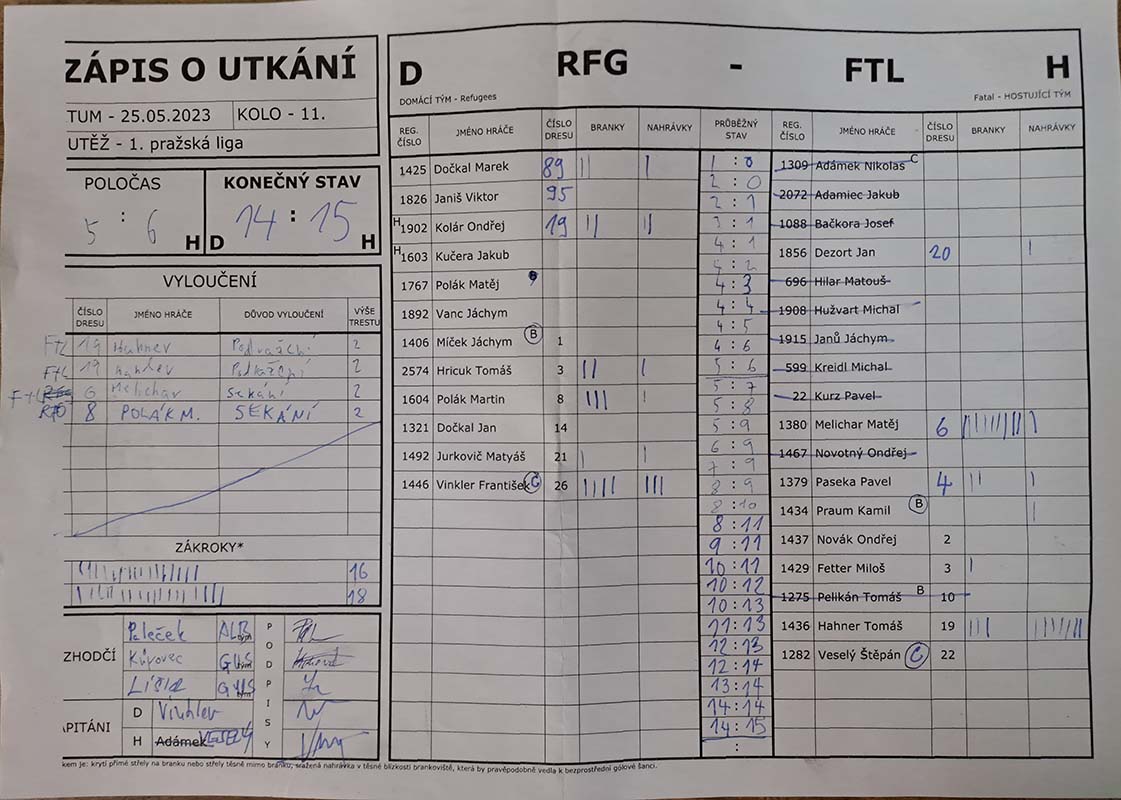 ZÁPIS O UTKÁNÍ
TUM - 25.05.2023 KOLO - 11.
UTĚŽ - 1. pražská liga
POLOČAS KONEČNÝ STAV
5 : 6 H D 14 : 15 H
VYLOUČENÍ
ČÍSLO DRESU JMÉNO HRÁČE DŮVOD VYLOUČENÍ VÝŠE TRESTU
FTL 19 Hahner 2
FTL 19 Hahner 2
FTL 6 Melichar Sekání 2
8 POLÁK M. SEKÁNÍ 2
ZÁKROKY*
16
18
ZHODČÍ
Paleček ALB
GUS
GUS
PODPISY
APITÁNI
D Vinkler
H Adámek VESELÝ
D RFG - FTL H
DOMÁCÍ TÝM - Refugees Fatal - HOSTUJÍCÍ TÝM
REG. ČÍSLO JMÉNO HRÁČE ČÍSLO DRESU BRANKY NAHRÁVKY PRŮBĚŽNÝ STAV REG. ČÍSLO JMÉNO HRÁČE ČÍSLO DRESU BRANKY NAHRÁVKY
1425 Dočkal Marek 89 || |
1826 Janiš Viktor 95
H1902 Kolár Ondřej 19 || ||
H1603 Kučera Jakub
1767 Polák Matěj
1892 Vanc Jáchym
1406 Míček Jáchym B 1
2574 Hricuk Tomáš 3 || |
1604 Polák Martin 8 ||| |
1321 Dočkal Jan 14
1492 Jurkovič Matyáš 21 | |
1446 Vinkler František C 26 |||| |||
1 : 0
2 : 0
2 : 1
3 : 1
4 : 1
4 : 2
4 : 3
4 : 4
4 : 5
4 : 6
5 : 6
5 : 7
5 : 8
5 : 9
6 : 9
7 : 9
8 : 9
8 : 10
8 : 11
9 : 11
10 : 11
10 : 12
10 : 13
11 : 13
12 : 13
12 : 14
13 : 14
14 : 14
14 : 15
:
1309 Adámek Nikolas C
2072 Adamiec Jakub
1088 Bačkora Josef
1856 Dezort Jan 20 |
696 Hilar Matouš
1908 Hužvart Michal
1915 Janů Jáchym
599 Kreidl Michal
22 Kurz Pavel
1380 Melichar Matěj 6 |
1467 Novotný Ondřej
1379 Paseka Pavel 4 || |
1434 Praum Kamil B |
1437 Novák Ondřej 2
1429 Fetter Miloš 3 |
1275 Pelikán Tomáš B 10
1436 Hahner Tomáš 19 |||
1282 Veselý Štěpán C 22
kem je: krytí přímé střely na branku nebo střely těsně mimo branku, sražená nahrávka v těsné blízkosti brankoviště, která by pravěpodobně vedla k bezprostřední gólové šanci.